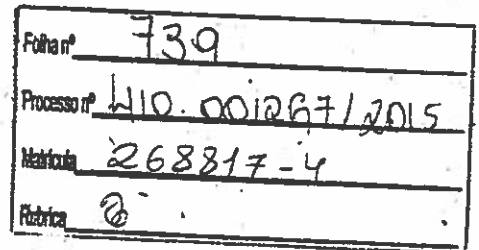 Folha nº 739
Processo nº 410.001267/2015
Matrícula 268817-4
Rubrica